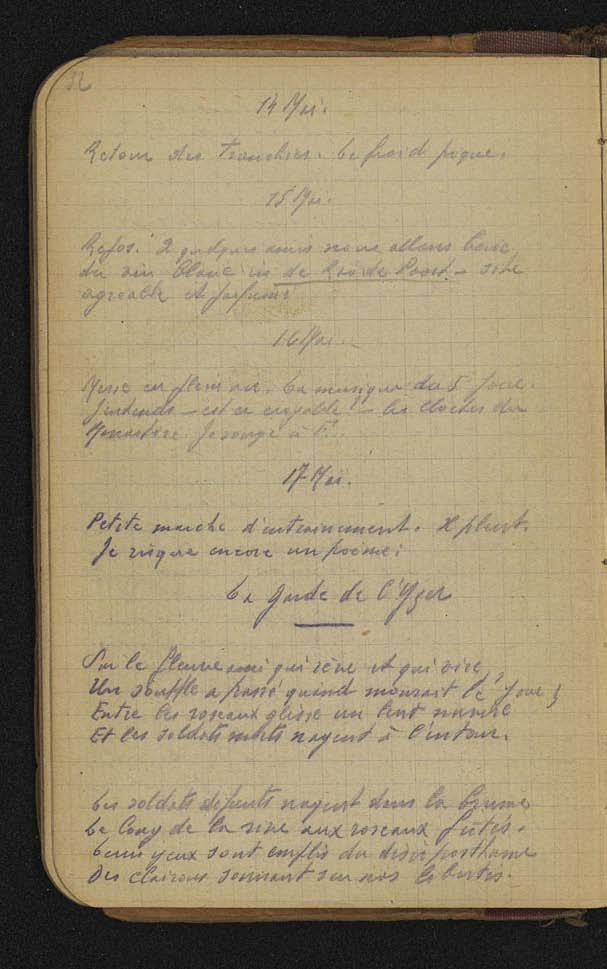 32
14 Mai.
Retour des tranchées. Le froid pique.
15 Mai.
Repos. 2 quelques amis nous allons boire
du vin blanc de – site
agréable et parfumé
16 Mai.
Messe en plein air. La musique du 5 joue.
J'entends – est-ce croyable! – les cloches du
Monastère. Je songe à F...
17 Mai.
Petite marche d'entrainement. Il pleut.
Je risque encore un poème:
La garde de l'Yser
Sur le fleuve ami qui rêve et qui vire,
Un souffle a passé quand mourait le jour;
Entre les roseaux glisse un lent navire
Et les soldats morts nagent à l'entour.
Les soldats défunts nagent dans la brume
Le long de la rive aux roseaux futés.
Leurs yeux sont emplis du désir posthume
Des clairons sonnant sur nos libertés.